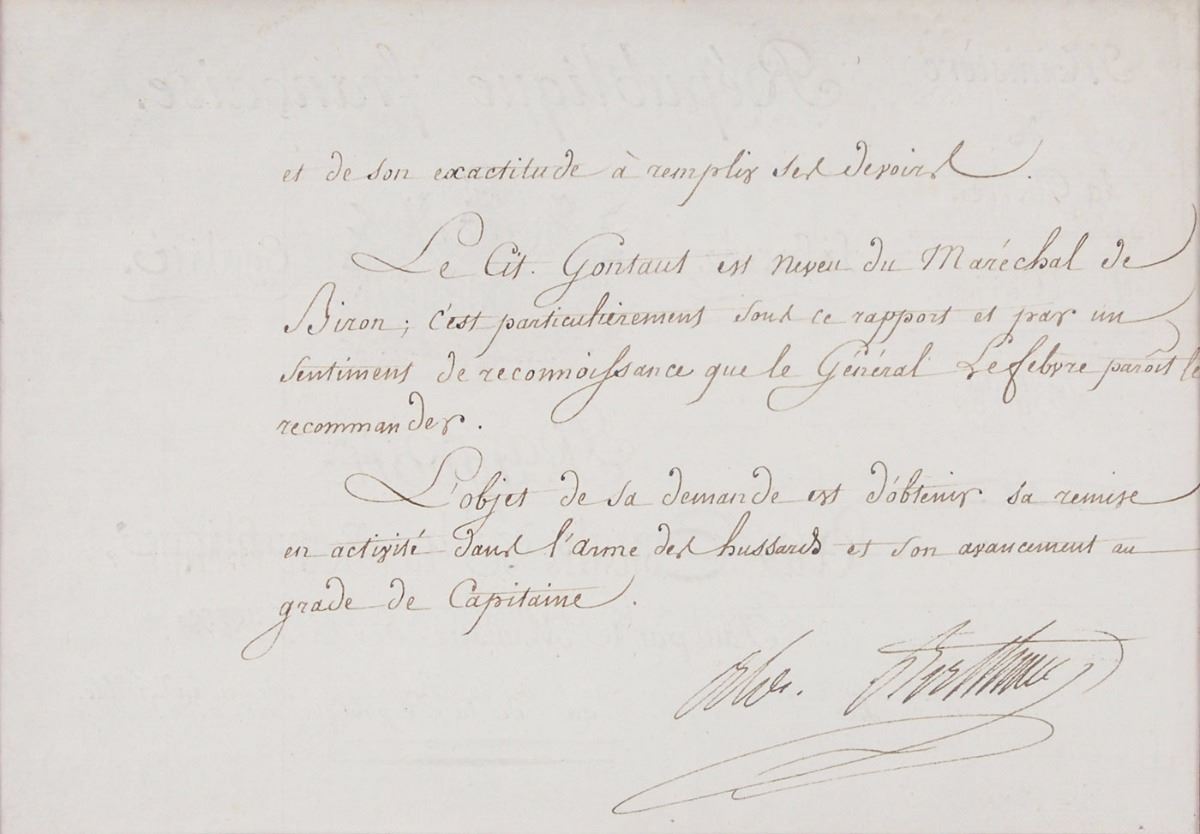 et de son exactitude à remplir ses devoirs.
Le Cit. Gontaut est neveu du Maréchal de
Biron; c'est particulièrement sous ce rapport et par un
sentiment de reconnoissance que le Général Lefebvre paroît le
recommander.
L'objet de sa demande est d'obtenir sa remise
en activité dans l'arme des hussards et son avancement au
grade de Capitaine.
Alex. Berthier